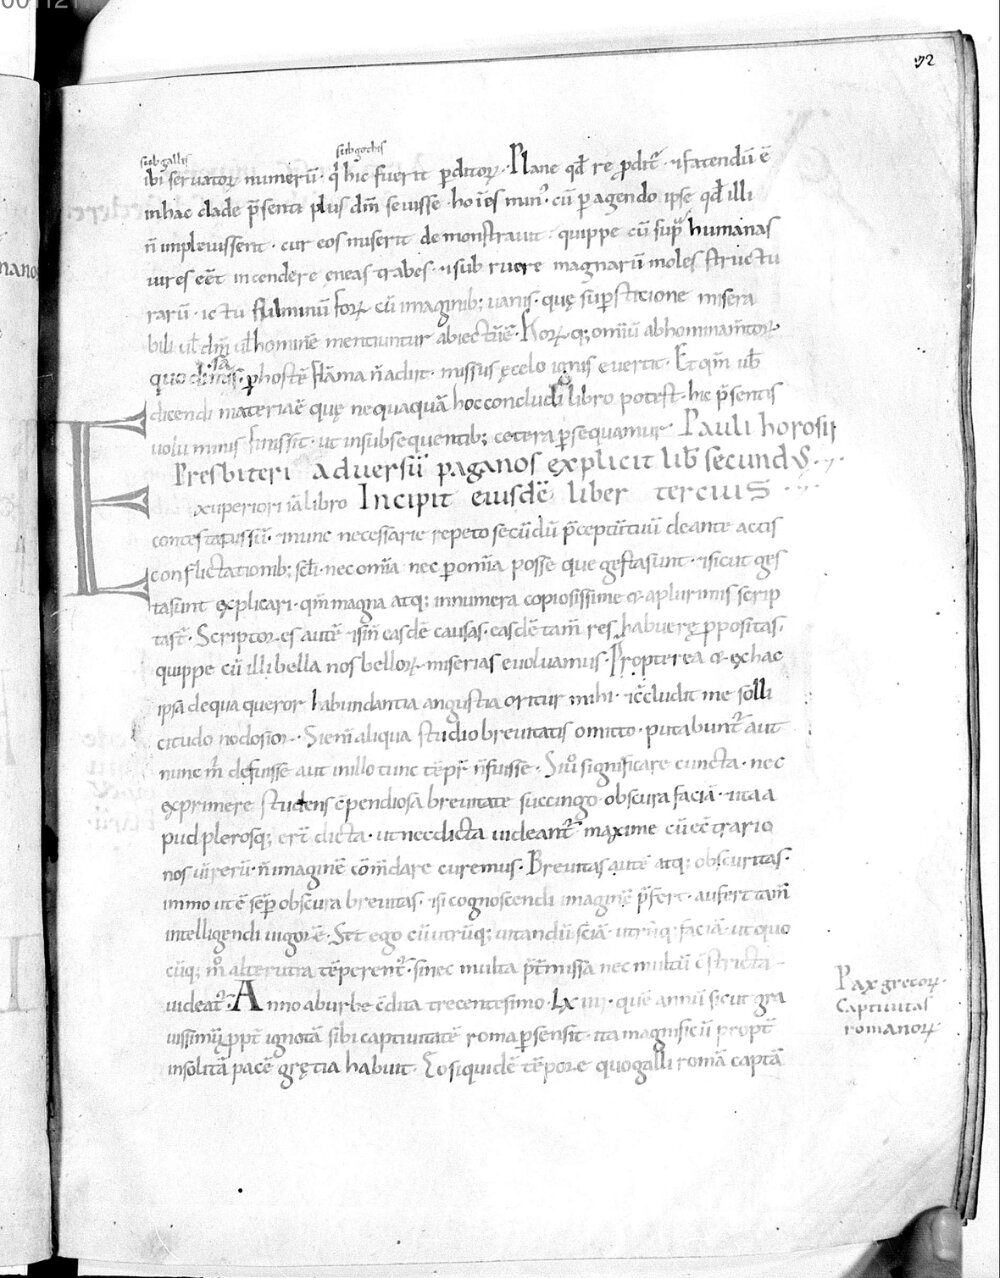 32
sub gallis subgothis
ibi seruatorꝝ numerū · q̄ hic fuerit ꝑditorꝝ · Plane qd̄ re ꝑdit̄ · ⁊fatendū ē
inhac clade p̄senti plus dm̄ seuisse · hoīes min᷒ · cū ꝑagendo ipse qd̄ illi
n̄ impleuissent · cur eos miserit demonstrauit · quippe cū sup̄ humanas
uires eēt incendere eneas trabes · ⁊subruere magnarū moles structu
rarū · ictu fulminū forꝝ cū imaginib; uanis · quę suꝑsticione misera
bili ul̄ dm̄ ul̄ hominē mentiuntur abiectūē · Horꝝ q; omīū abhominam̄torꝝ
quod ꝑhostē flāma n̄ adiit · missus ęcelo ignis euertit · Et qm̄ ub̄
dicendi materiaē quę nequaquā hocconcludi libro potest · hic p̄sentis
uoluminis finissit · ut insubsequentib; cetera ꝑsequamur Pauli horosii
Presbiteri aduersū paganos explicit lib̄ secund᷒
Exsuperiori iā libro Incipit eiusdē liber tercius
contestatussū · ⁊nunc necessarie repeto secūdū p̄ceptūtuū deante actis
conflictationib; sc̄li · nec omīa nec ꝑomīa posse que gestasunt · ⁊sicut ges
tasunt explicari · qm̄ magna atq; innumera copiosissime & aplurimis scrip
tast̄ · Scriptorꝝ es autē ⁊sin̄ easdē causas · easdē tam̄ res habuerę ꝓpositas,
quippe cū illi bella nos bellorꝝ miserias euoluamus · Propterea & exhac
ipsa dequa queror habundantia angustia oritur mihi · ⁊c̄cludit me solli
citudo nodosior · Sieni aliqua studio breuitatis omitto · putabunt̄ aut
nunc m̄ defuisse aut inillo tunc tēpr̄ n̄fuisse · Siu᷒ significare cuncta · nec
exprimere studens c̄pendiosa breuitate succingo obscura faciā · ⁊ita a
pud plerosq; erc̄ dicta · ut nec dicta uideant̄ maxime cū ec̄trario
nos uī rerū · n̄ imaginē cōm̄dare curemus · Breuitas autē atq; obscuritas ·
immo ut ē seꝑ obscura breuitas · ⁊si cognoscendi imaginē p̄fert · aufert tam̄
intelligendi uigorē · S;t ego cū utrūq; uitandū sciā · utrūq; faciā · ut quo
cūq; m̊ alterutra tēperent̄ · sinec multa p̄t̄missa nec multū c̄stricta
uideat̄ · Anno aburbe c̄dita trecentesimo · Lxiiii · quē annū sicut gra
uissimū ꝓpt̄ ignotā sibi captiuitatē roma ꝑsensit · ita magnificū propt̄
insolitā pacē gręcia habuit · Eo siquidē tēpore quo galli romā captā
Pax grecorꝝ
Captiuitas
romanorꝝ